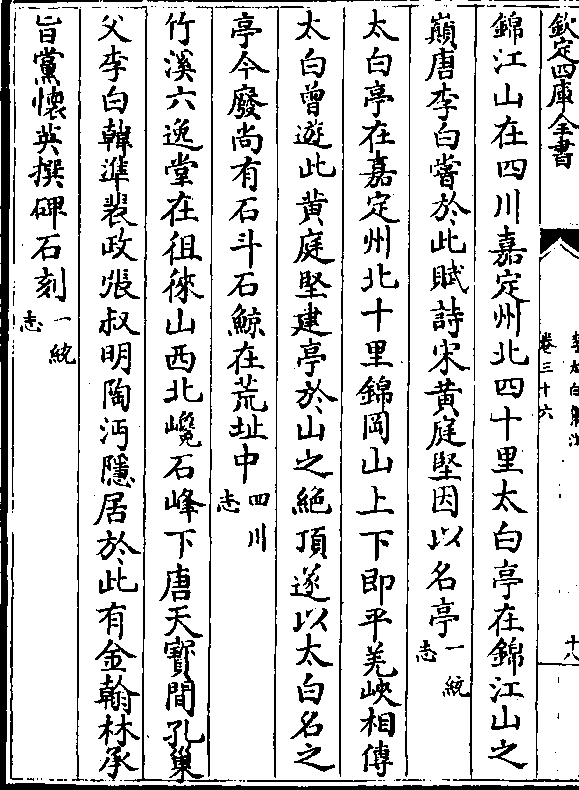 欽定四庫全書
卷三十六
十八
錦江山在四川嘉定州北四十里太白亭在錦江山之
巔唐李白嘗於此賦詩宋黃庭堅因以名亭一統志
太白亭在嘉定州北十里錦岡山上下即平羌峽相傳
太白曾遊此黃庭堅建亭於山之絶頂遂以太白名之
亭今廢尚有石斗石鯨在荒址中四川志
竹溪六逸堂在徂徠山西北巉石峰下唐天寶間孔巢
父李白韓準裴政張叔明陶沔隱居於此有金翰林承
旨黨懷英撰碑石刻一統志